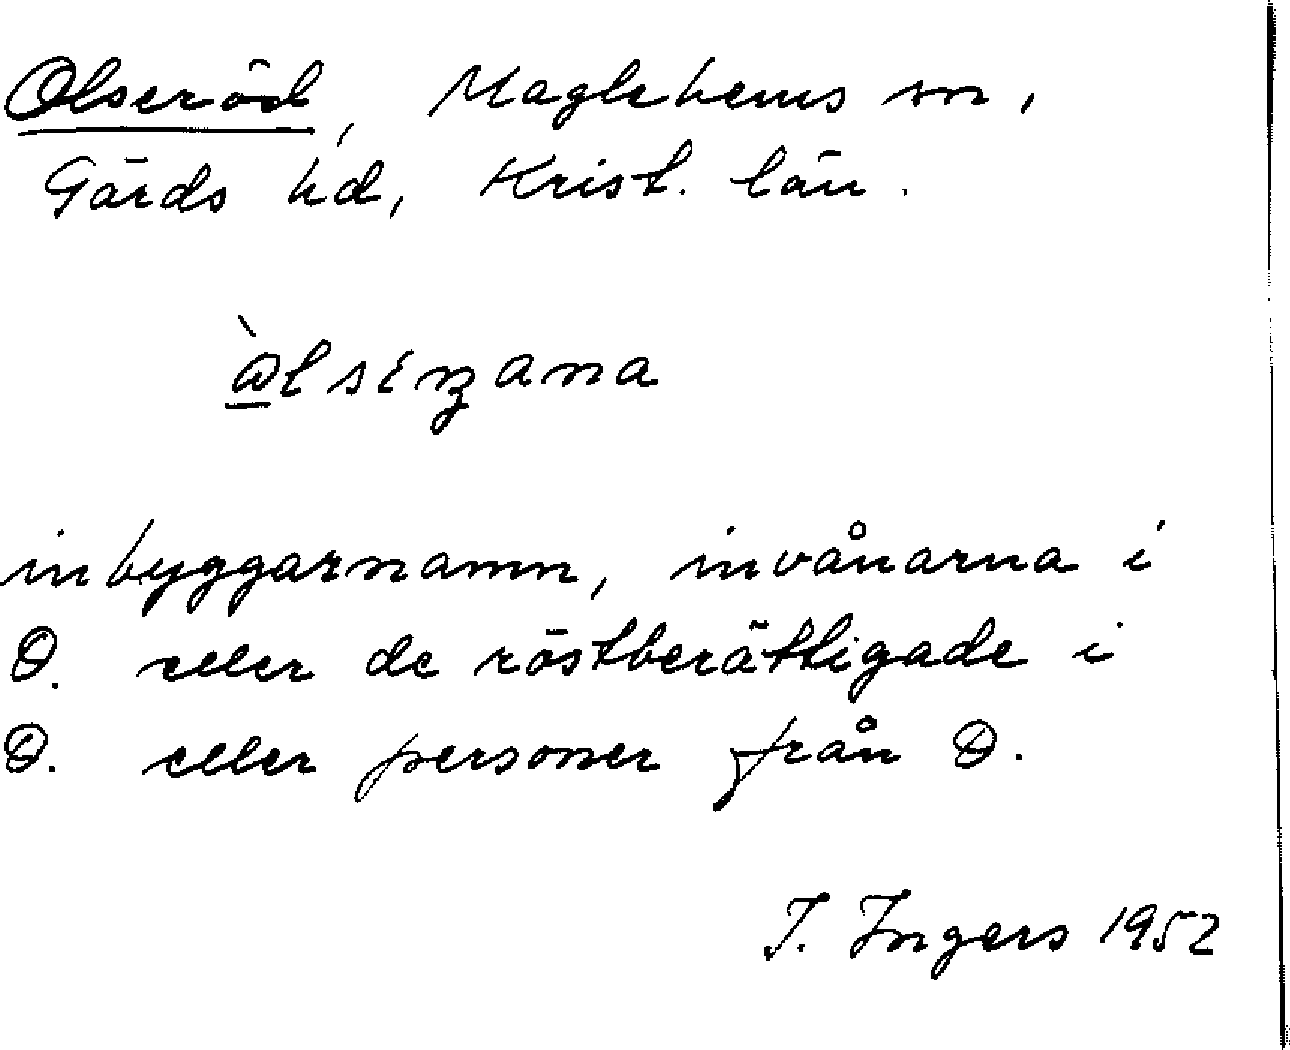 Olseröd, Maglehems sn,
Gärds hd, Krist. län.
inbyggarnamn, invånarna i
O. eller de röstberättigade i
O. eller personer från O.
I. Ingers 1952